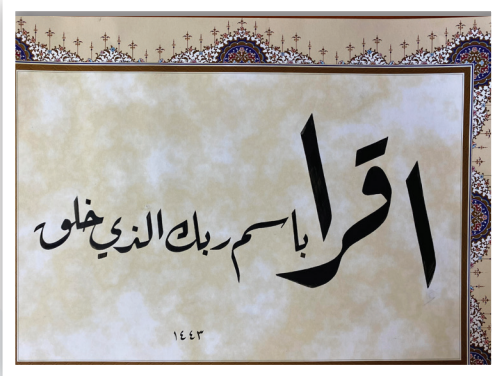 اقرا باسم ربك الذي خلق
١٤٤٣